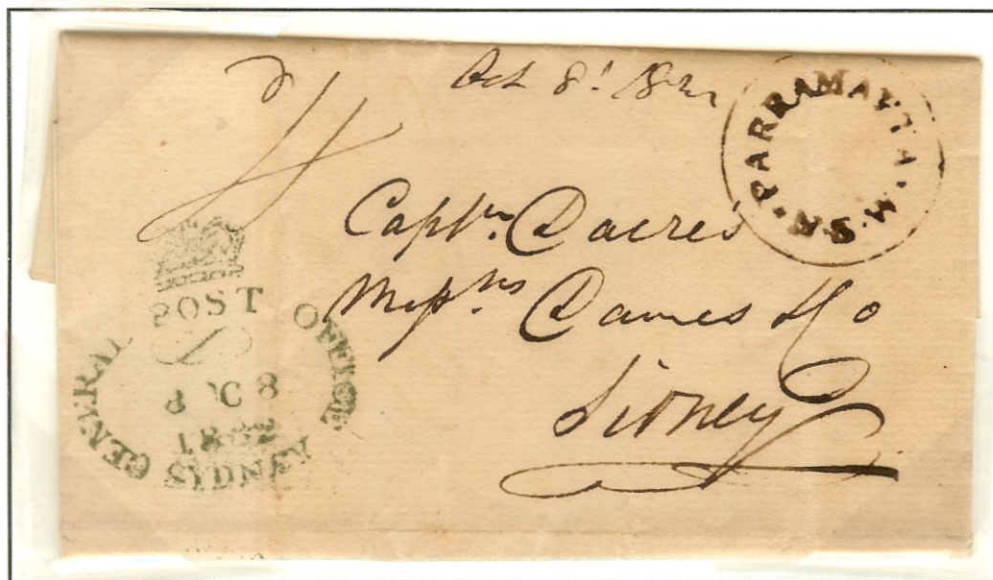 Oct 8! 1832
PARRAMATTA. N.S.W.
4
Captn. Dacres
Messrs Dawes & Co
Sidney
GENERAL POST OFFICE
8 OC 8
1832
SYDNEY